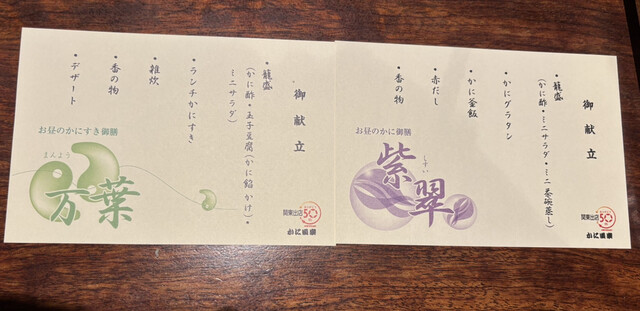 御献立
・籠盛
(かに酢・玉子豆腐(かに餡かけ)・
ミニサラダ)
・ランチかにすき
・雑炊
・香の物
・デザート
お昼のかにすき御膳
まんよう
万葉
関東出店
50
かに道楽
御献立
・籠盛
(かに酢・ミニサラダ・ミニ茶碗蒸し)
・かにグラタン
・かに釜飯
・赤だし
・香の物
お昼のかに御膳
しすい
紫翠
関東出店
50
かに道楽